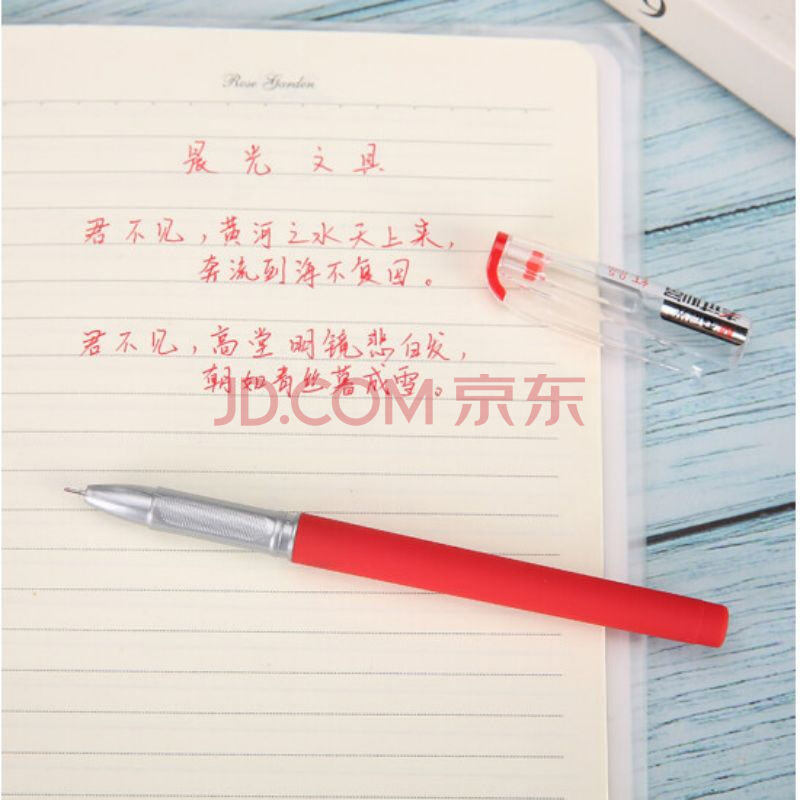 Rose Garden
晨光 文具
君不见，黄河之水天上来，
奔流到海不复回。
君不见，高堂明镜悲白发，
朝如青丝暮成雪。
JD.COM 京东
红 0.5